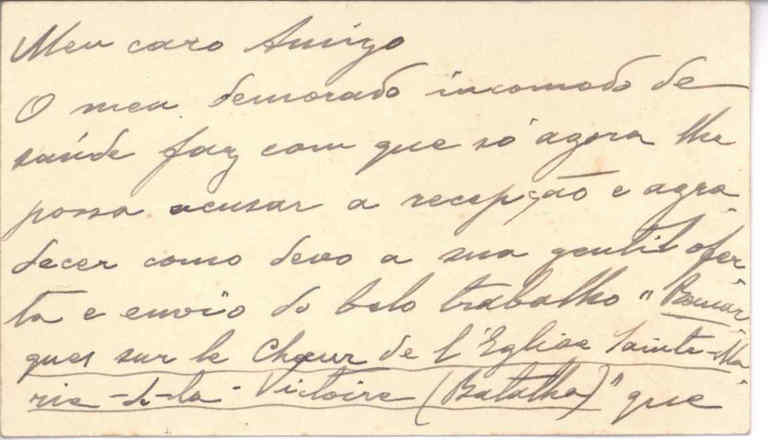 Meu caro Amigo
O meu demorado incomodo de
saúde faz com que só agora lhe
possa acusar a recepção e agra
decer como devo a sua gentil ofer
ta e envio do belo trabalho "Remar
ques sur le Chœur de l'Eglise Sainte-Ma
rie-de-la-Victoire (Batalha)" que